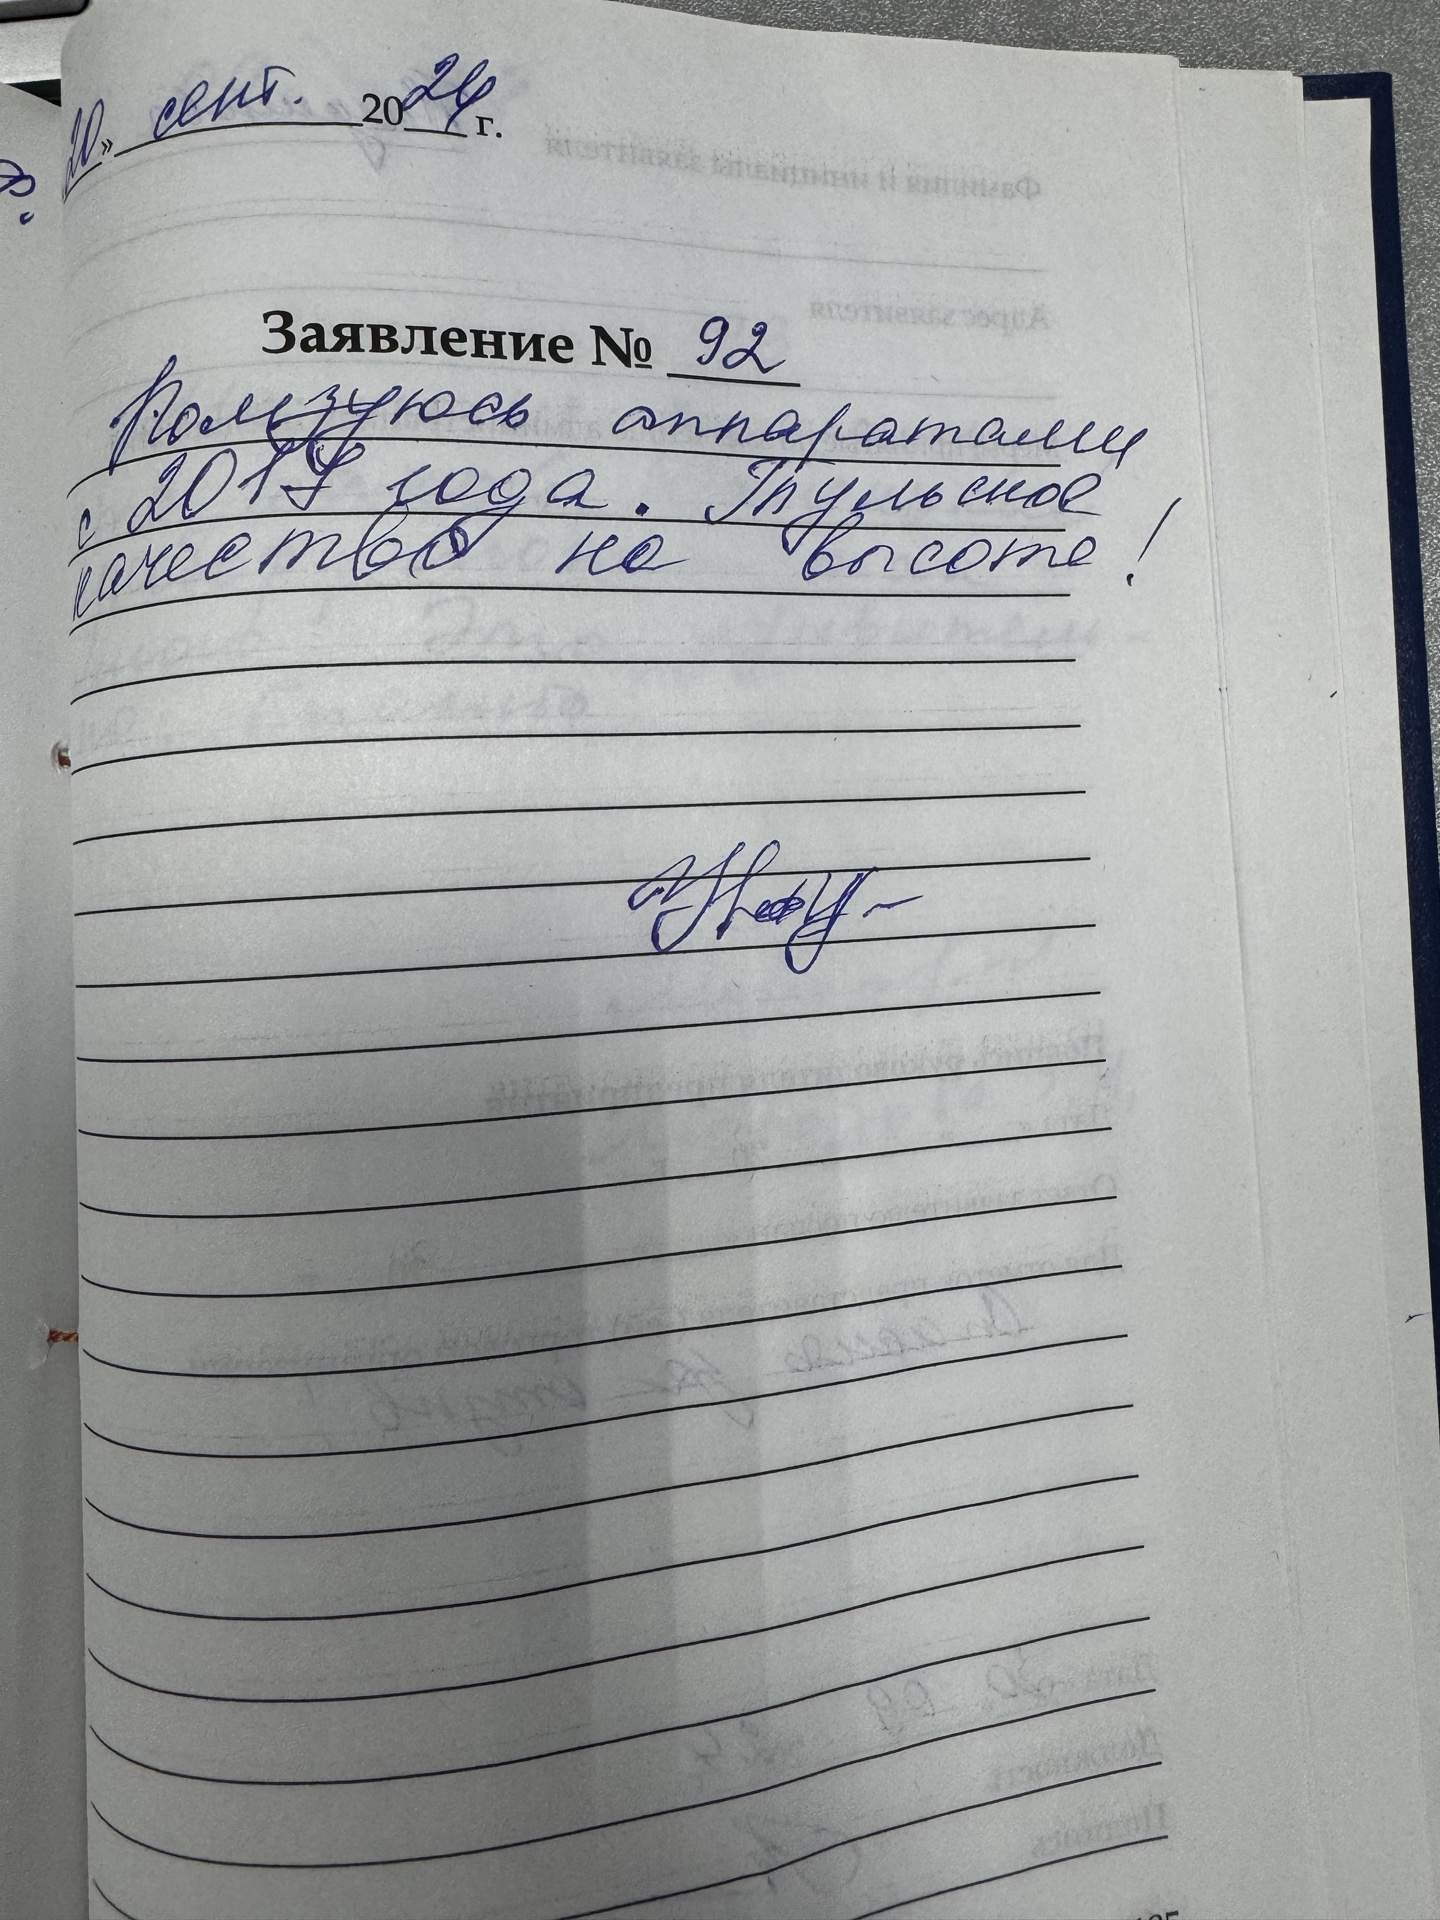 20» сент. 2024 г.
Заявление № 92
Пользуюсь аппаратами
с 2017 года. Тульское
качество на высоте!